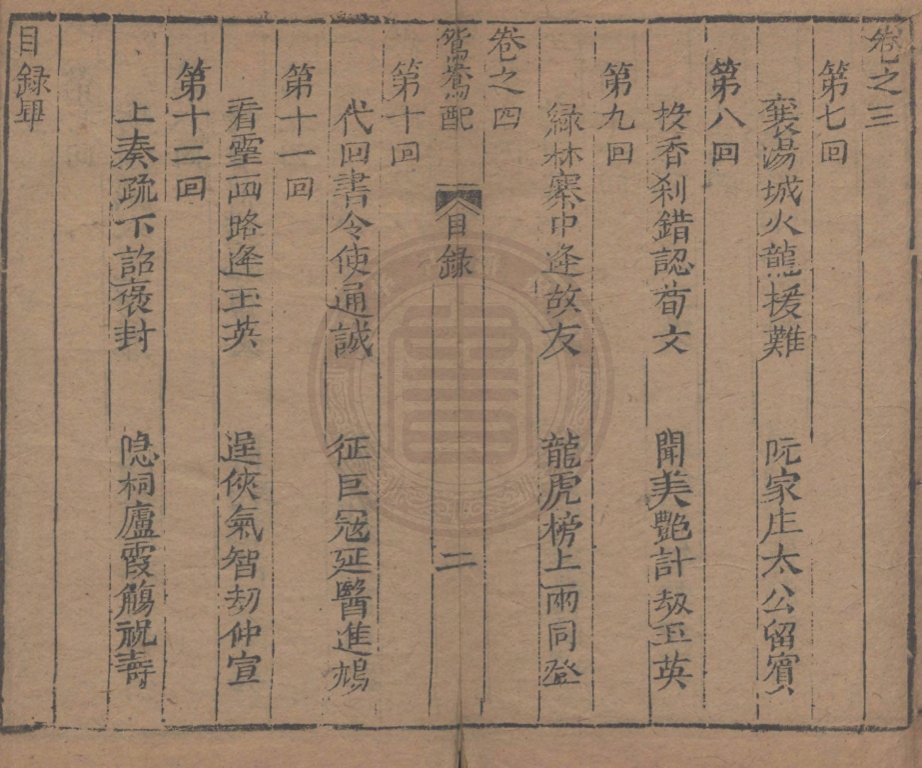 卷之三
第七回
襄湯城火龍援難 阮家庄太公留賓
第八回
投香刹錯認荀文 聞美艷計刼玉英
第九回
緑林寨中逢故友 龍虎榜上兩同登
卷之四
鴛鴦配 目録 二
第十回
代回書令使通誠 征巨冦延醫進鴆
第十一回
看靈画路逢玉英 逞俠氣智刼仲宣
第十二回
上奏疏下詔褒封 隐桐廬霞觴祝壽
目録畢